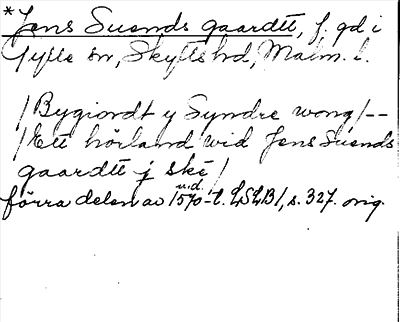 *Jens Suends gaardtt, f. gd i
Gylle sn, Skytts hd, Malm. l.
/Bygiordt y Syndre wong/--
/Ett hörland wid Jens Suends
gaardtt j ske/
u.d.
förra delen av 1570-t. LSLB1, s. 327. orig.